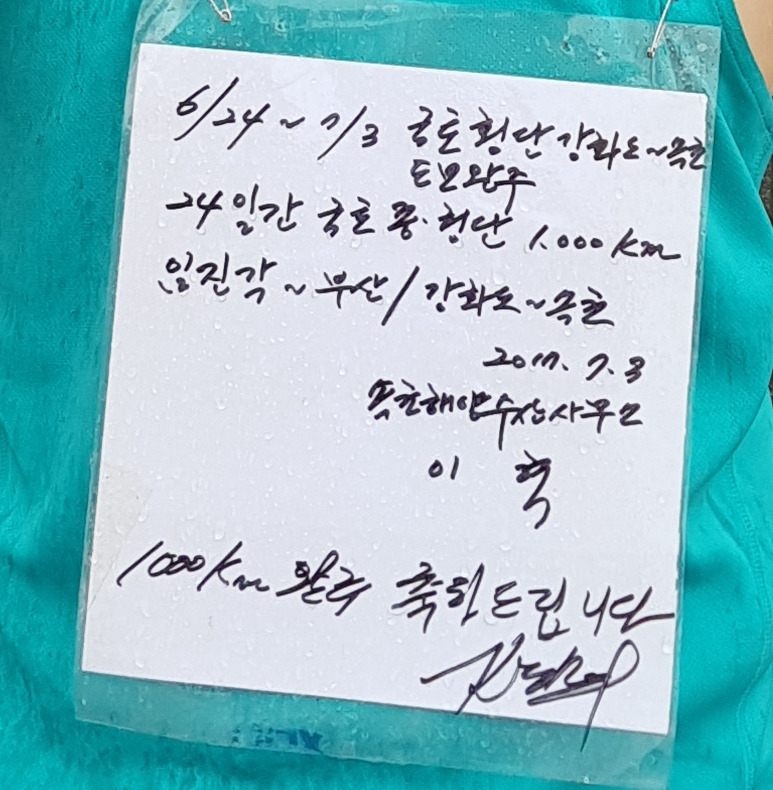 6/24 ~ 7/3 국토횡단 강화도~속초
도보완주
24일간 국토 종·횡단 1.000 km
임진각 ~ 부산 / 강화도~속초
2017. 7. 3
속초해양수산사무소
이 혁
1000 km 완주 축하드립니다